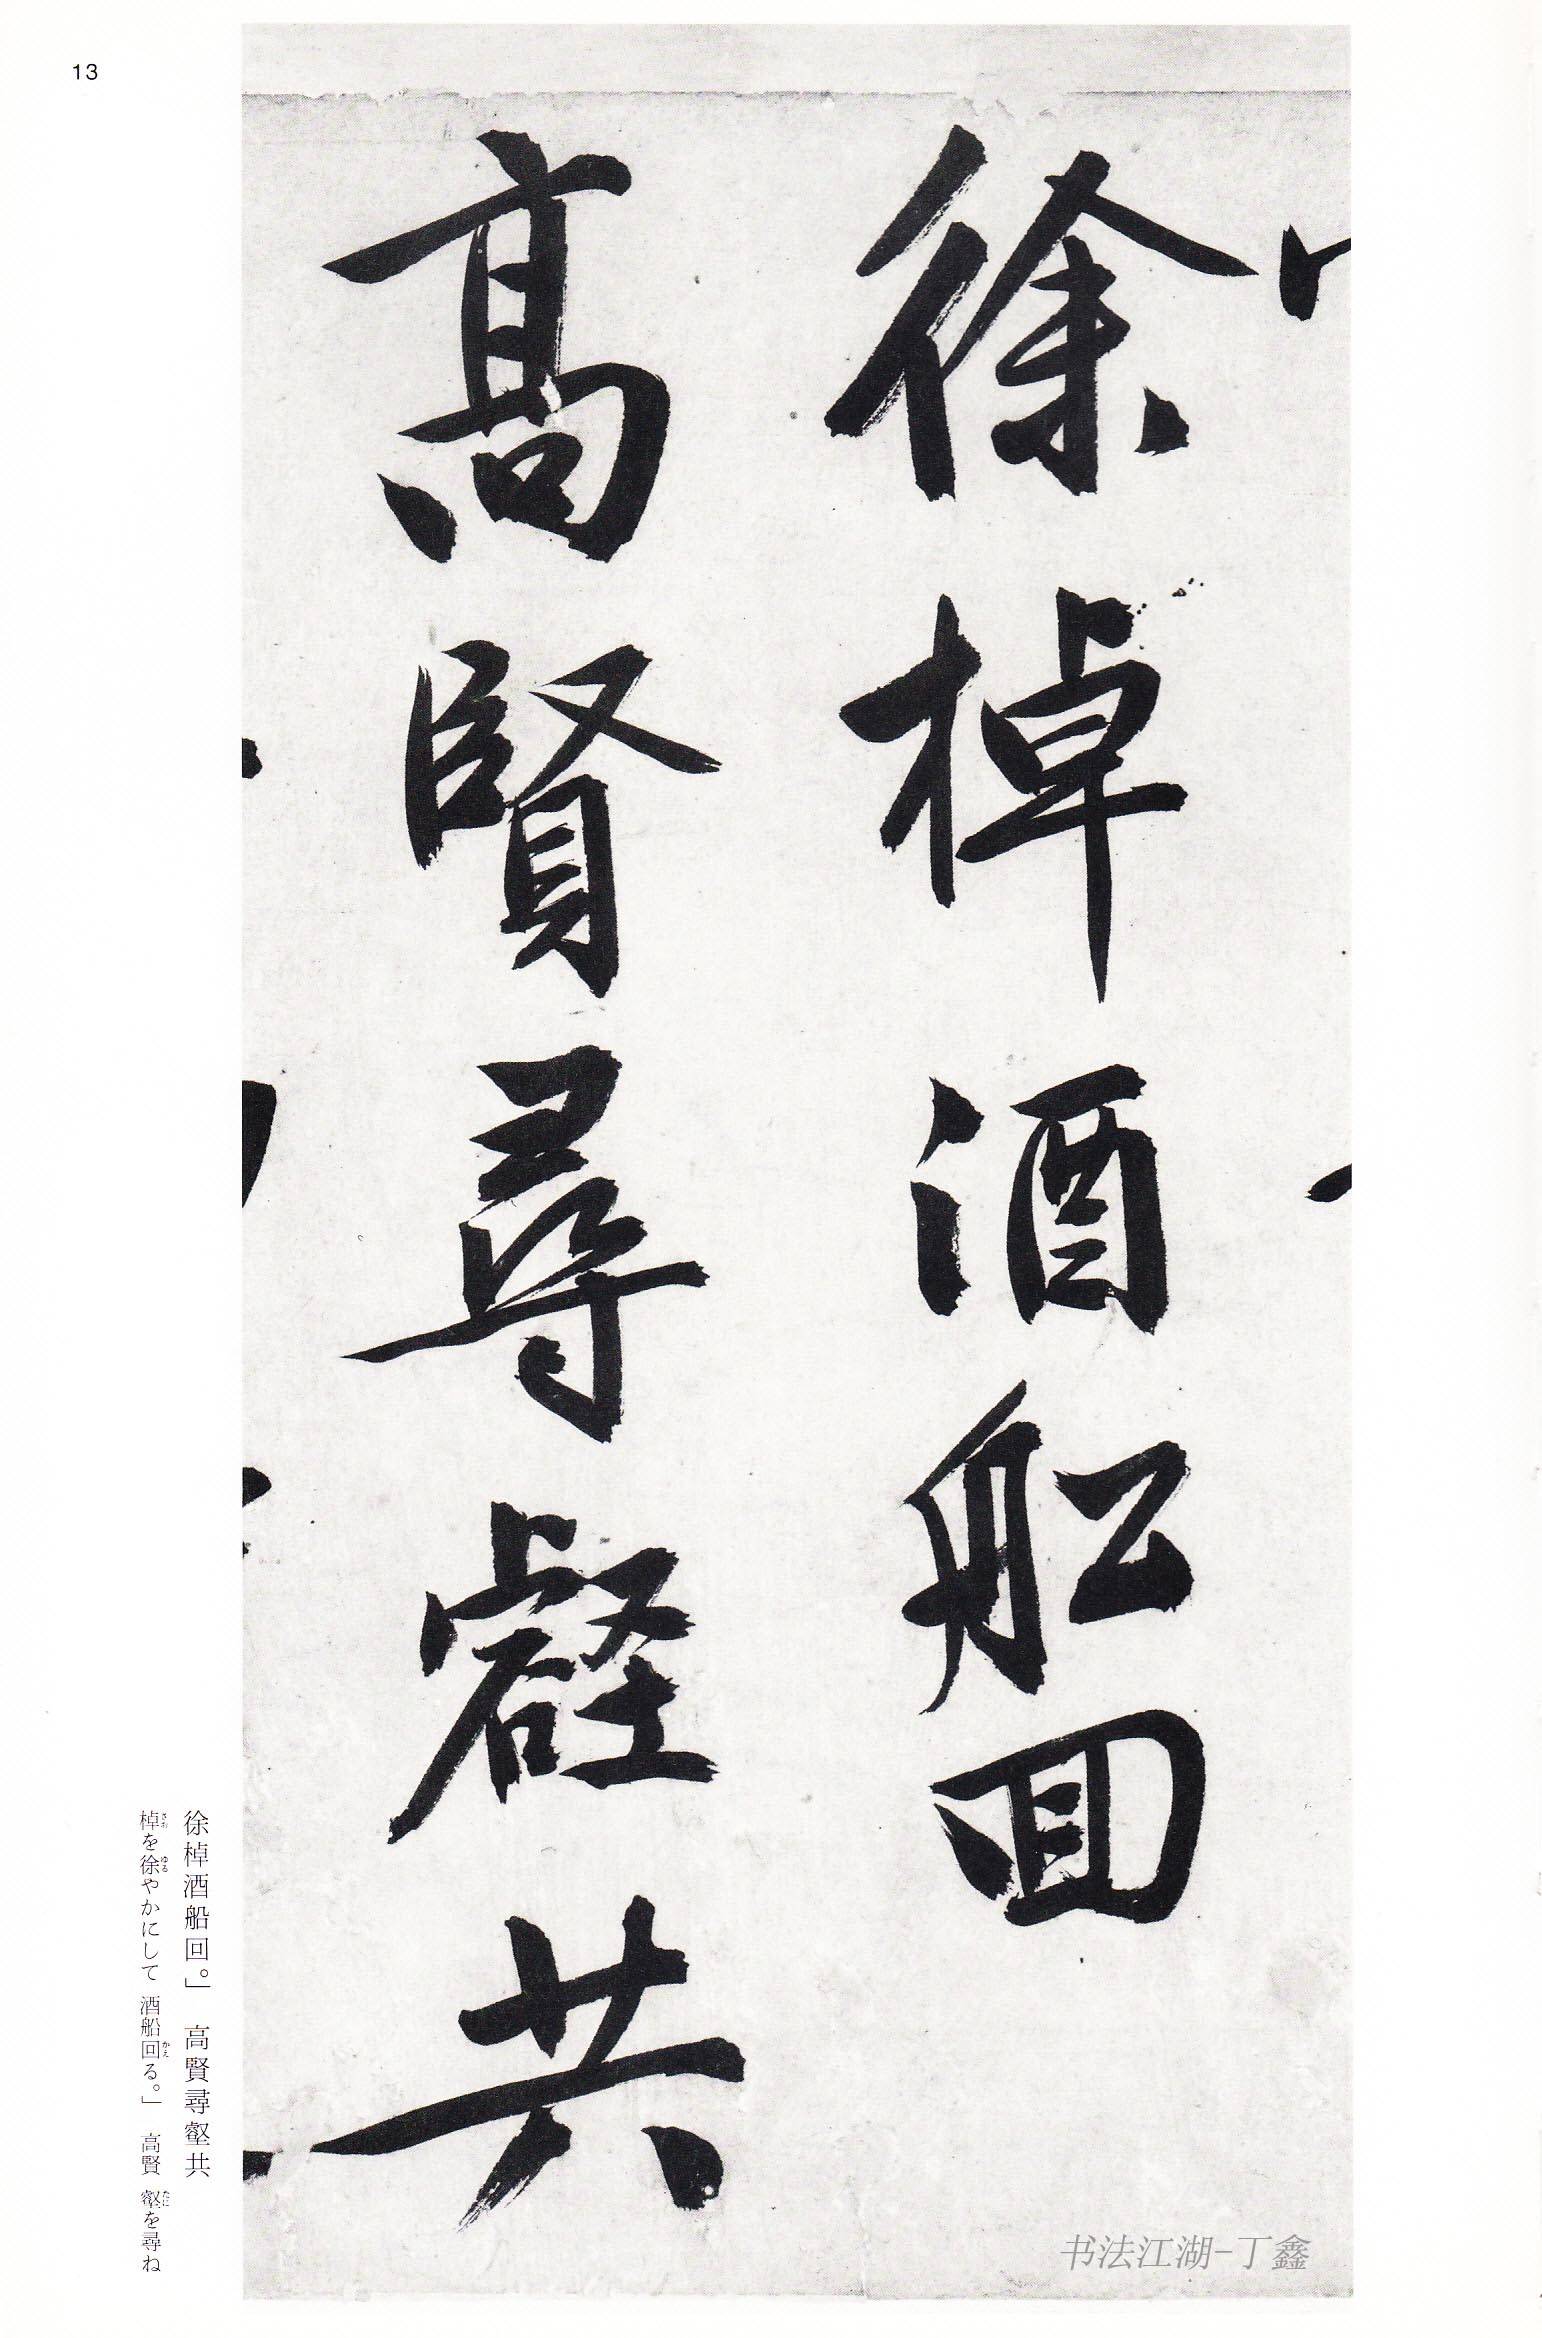 13
徐棹酒船回
高賢尋壑共
徐棹酒船回。」 高賢尋壑共
棹を徐やかにして 酒船回る。」 高賢 壑を尋ね
书法江湖-丁鑫